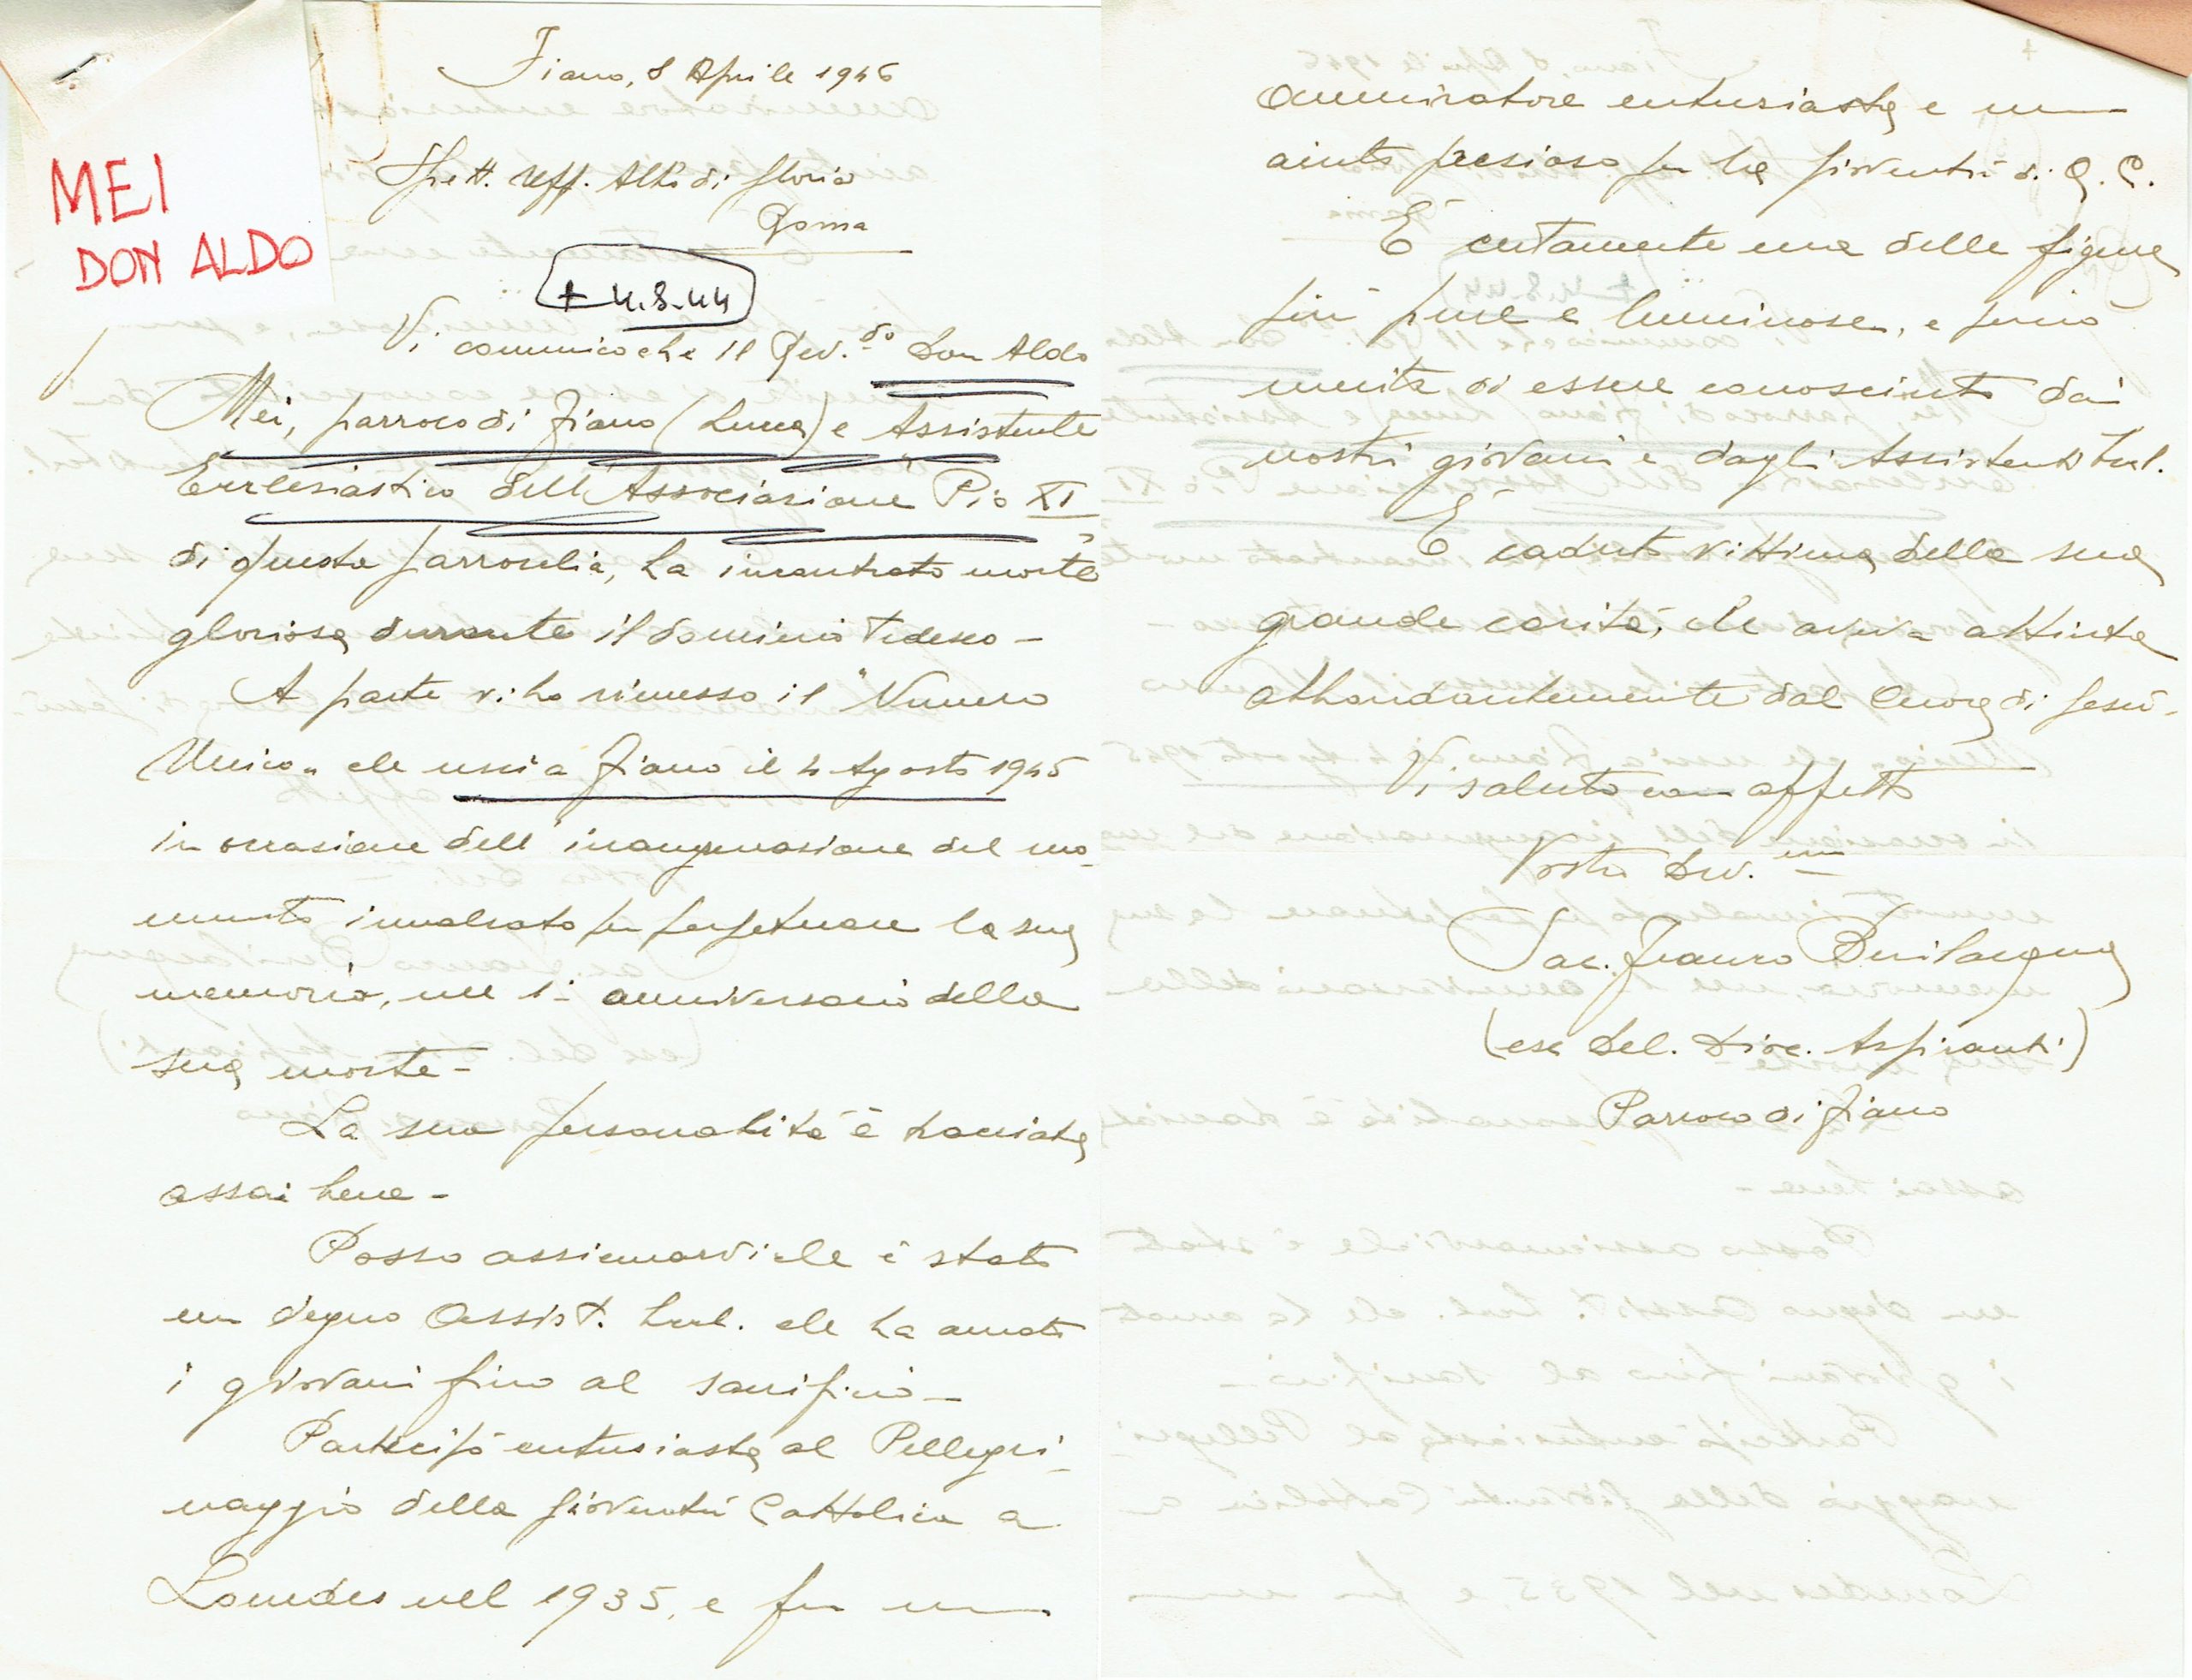 MEI
DON ALDO
Fiano, 8 Aprile 1946
Spett. Uff. Albo di gloria
Roma
+ 4.8.44
Vi comunico che il Rev.do Don Aldo
Mei, parroco di Fiano (Lucca) e Assistente
Ecclesiastico dell'Associazione Pio XI
di questa parrocchia, ha incontrato morte
gloriosa durante il dominio Tedesco -
A parte vi ho rimesso il "Numero
Unico" che uscì a Fiano il 4 Agosto 1945
in occasione dell'inaugurazione del mo-
numento innalzato per perpetuare la sua
memoria, nel 1° anniversario della
sua morte -
La sua personalità è tracciata
assai bene -
Posso assicurarvi che è stato
un degno Assist. Eccl. che ha amato
i giovani fino al sacrificio -
Partecipò entusiasta al Pellegri-
naggio della Gioventù Cattolica a
Lourdes nel 1935, e fu un
ammiratore entusiasta e un
aiuto prezioso per la gioventù di A. C.
È certamente una delle figure
più pure e luminose, e perciò
merita di essere conosciuto dai
nostri giovani e dagli Assistenti Eccl.
È caduto vittima della sua
grande carità, che aveva attinta
abbondantemente dal Cuore di Gesù -
Vi saluto con affetto
Vostro Dev.mo
Sac. Franco Bevilacqua
(ex Del. Dioc. Aspiranti)
Parroco di Fiano